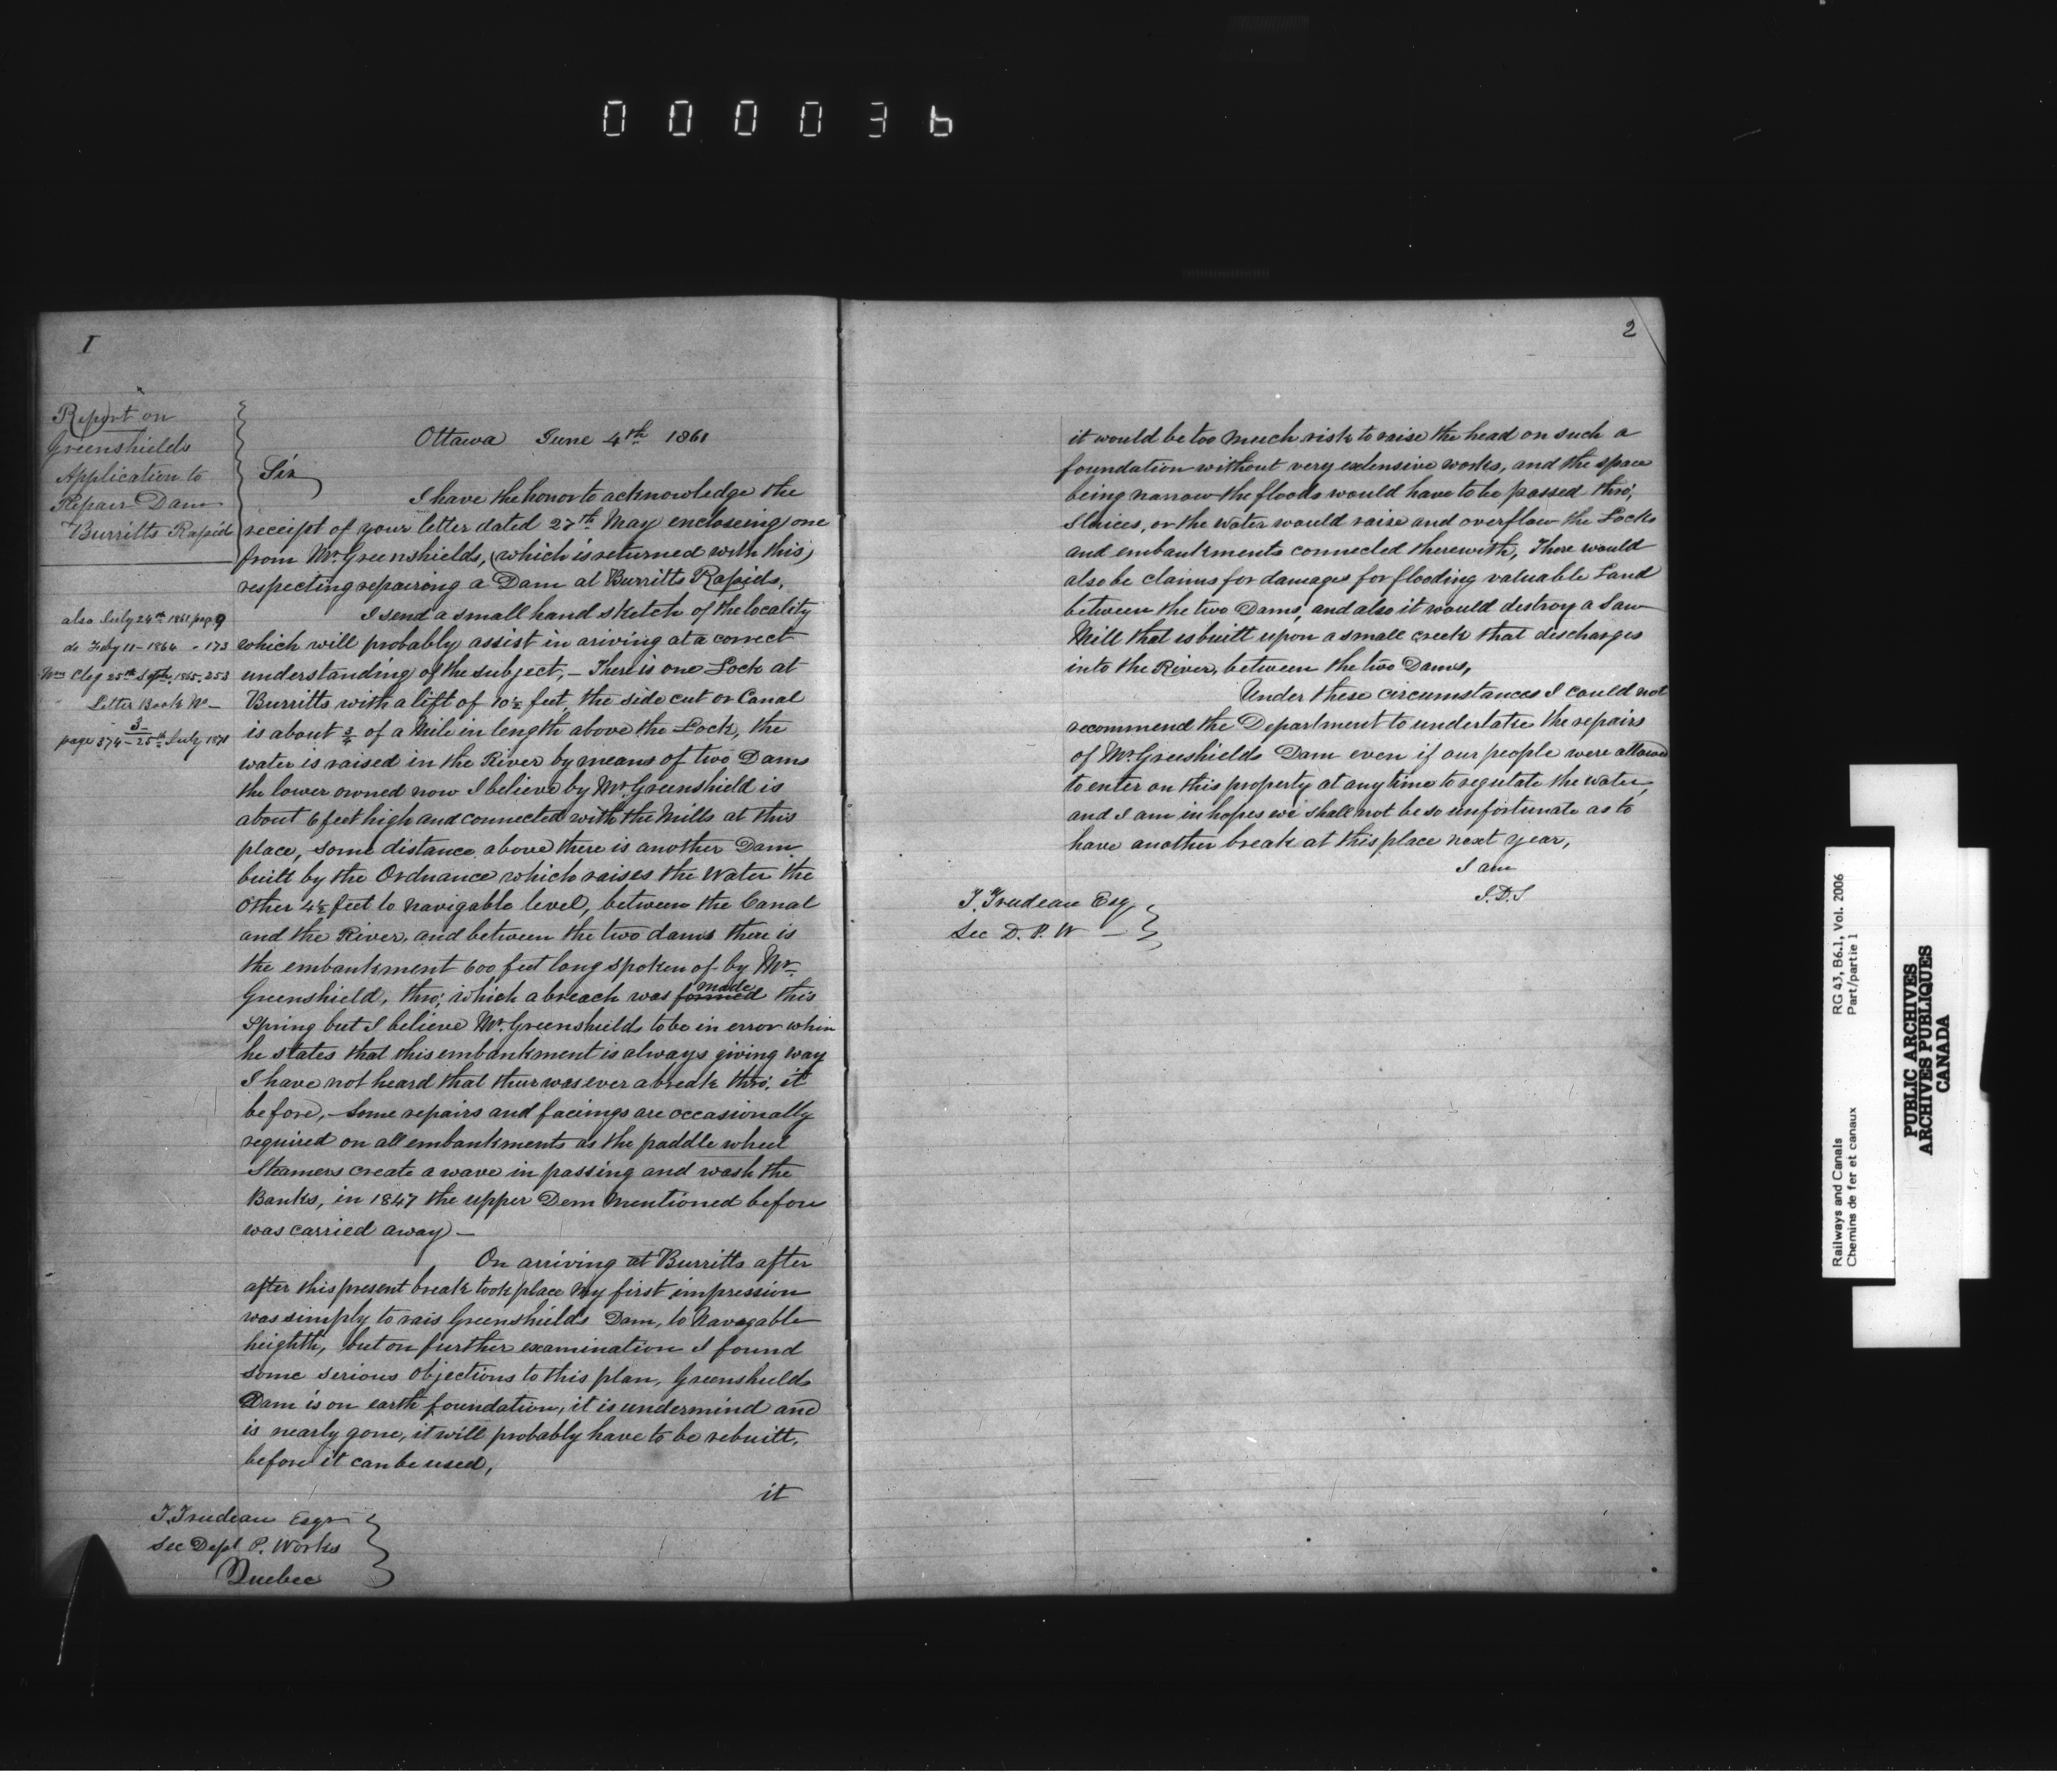 000036
1
Report on
Greenshields
Application to
Repair Dam
Burritts Rapids
also July 24th 1861 page 9
do Feby 11 - 1864 - 173
Wm Cleg 25th Septr. 1865. 253
Letter Book No -
3
page 374 - 25th July 1871
Ottawa June 4th 1861
Sir
I have the honor to acknowledge the
receipt of your letter dated 27th May encloseing one
from Mr. Greenshields, (which is returned with this)
respecting repairing a Dam at Burritts Rapids.
I send a small hand sketch of the locality
which will probably assist in ariving at a correct
understanding of the subject, - There is one Lock at
Burritts with a lift of 10½ feet, the side cut or Canal
is about ¾ of a Mile in length above the Lock, the
water is raised in the River by means of two Dams
the lower owned now I believe by Mr. Greenshield is
about 6 feet high and connected with the Mills at this
place, some distance above there is another Dam
built by the Ordnance which raises the Water the
Other 4½ feet to navigable level, between the Canal
and the River, and between the two dams there is
the embankment 600 feet long spoken of by Mr.
Greenshield, thro; which a breach was formed made this
Spring but I believe Mr. Greenshields to be in error when
he states that this embankment is always giving way
I have not heard that there was ever a break thro; it
before, - Some repairs and facings are occasionally
required on all embankments as the paddle wheel
Steamers create a wave in passing and wash the
Banks, in 1847 the upper Dem Mentioned before
was carried away -
On arriving at Burritts after
after this present break took place My first impression
was simply to rais Greenshields Dam, to Navagable
heighth, but on further examination I found
some serious Objections to this plan, Greenshields
Dam is on earth foundation, it is undermind and
is nearly gone, it will probably have to be rebuilt,
before it can be used,
it
T. Trudeau Esqr
Sec Dept P. Works
Quebec
2
it would be too Much risk to raise the head on such a
foundation without very extensive works, and the space
being narrow the floods would have to be passed thro;
Sluices, or the Water would raise and overflow the Locks
and embankments connected therewith, There would
also be claims for damages for flooding valuable Land
between the two Dams, and also it would destroy a Saw
Mill that is built upon a small creek that discharges
into the River, between the two Dams,
Under these circumstances I could not
recommend the Department to undertake the repairs
of Mr. Greenshields Dam even if our people were allowed
to enter on this property at any time to regulate the Water,
and I am in hopes we shall not be so unfortunate as to
have another break at this place next year,
I am
J. D. S
T. Trudeau Esq
Sec D. P. W -
Railways and Canals
Chemins de fer et canaux
RG 43, B6.1, Vol. 2006
Part/partie 1
PUBLIC ARCHIVES
ARCHIVES PUBLIQUES
CANADA